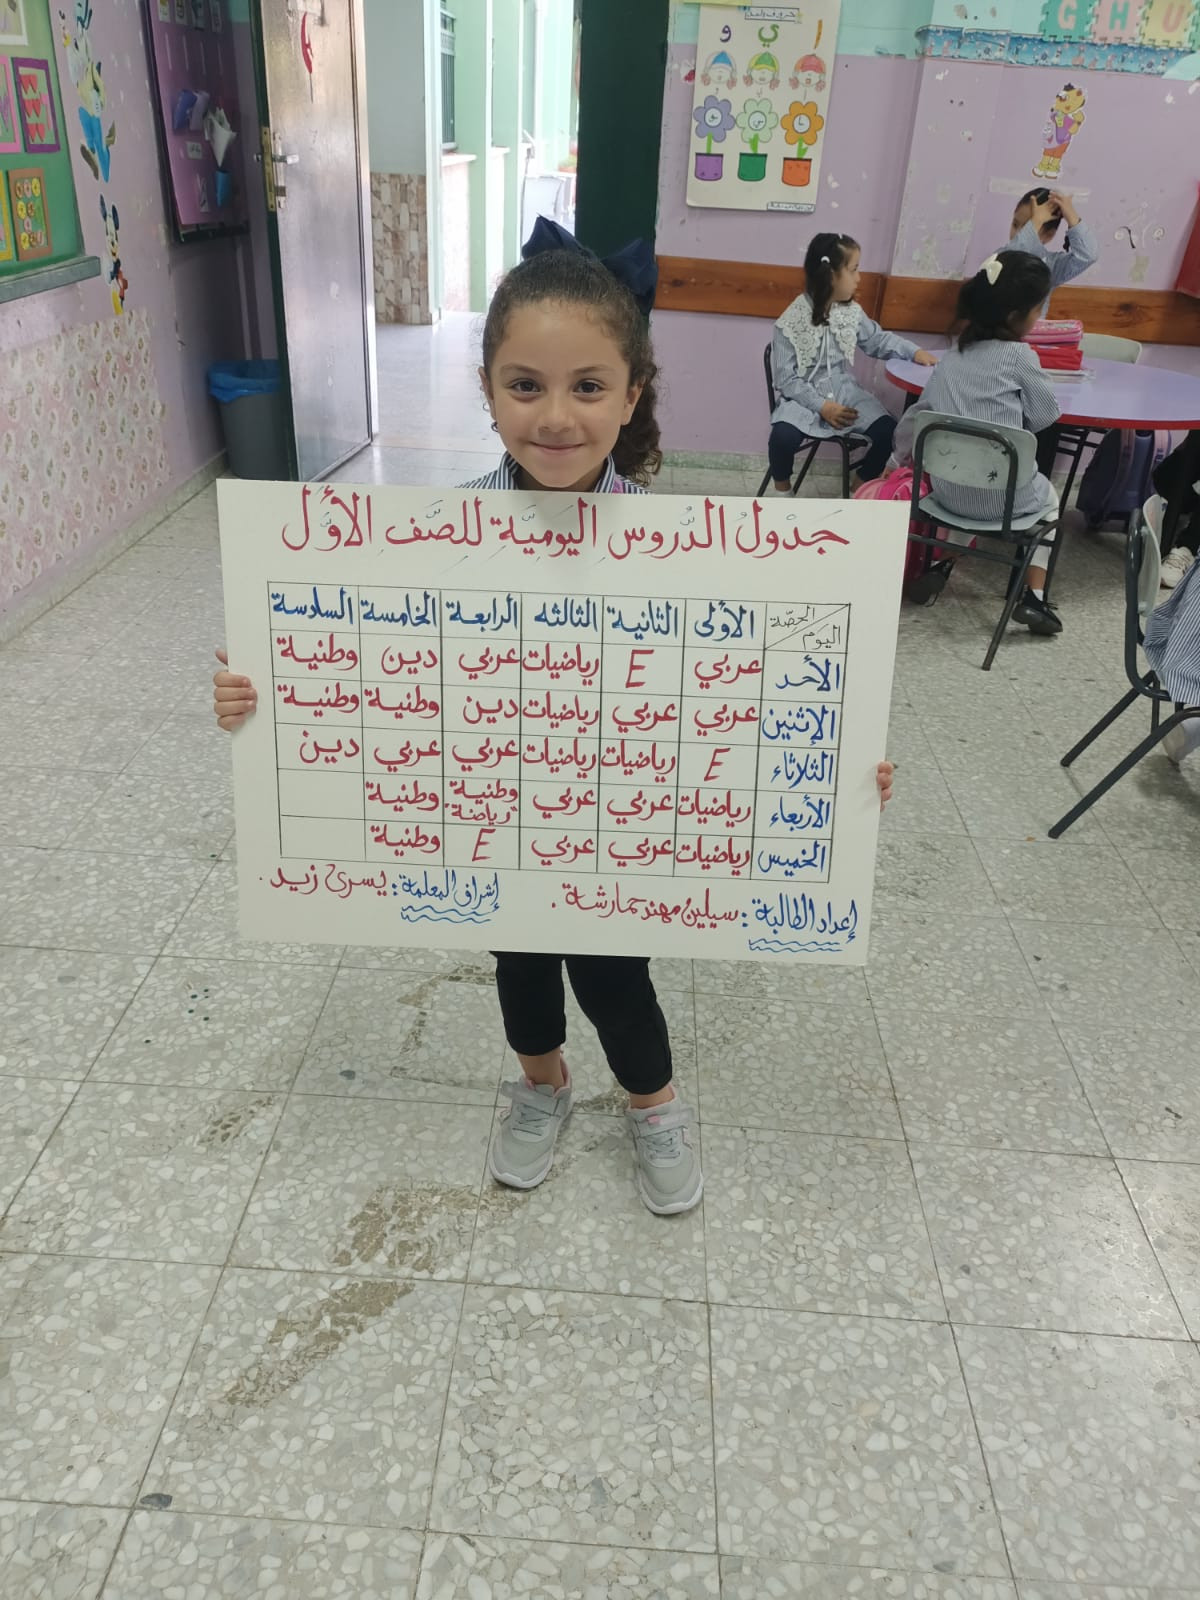 G H U
و ي ا
جَدْوَلُ الدُّروسِ اليَوميَّةِ لِلصَّفِ الأوَّل
الحصّة اليوم الأولى الثانية الثالثه الرابعة الخامسة السادسة
الأحد عربي E رياضيات عربي دين وطنية
الإثنين عربي عربي رياضيات دين وطنية وطنية
الثلاثاء E رياضيات رياضيات عربي عربي دين
الأربعاء رياضيات عربي عربي وطنية "رياضة" وطنية
الخميس رياضيات عربي عربي E وطنية
إعداد الطالبة : سيلين مهند حمارشة . إشراف المعلمة : يسرى زيد .